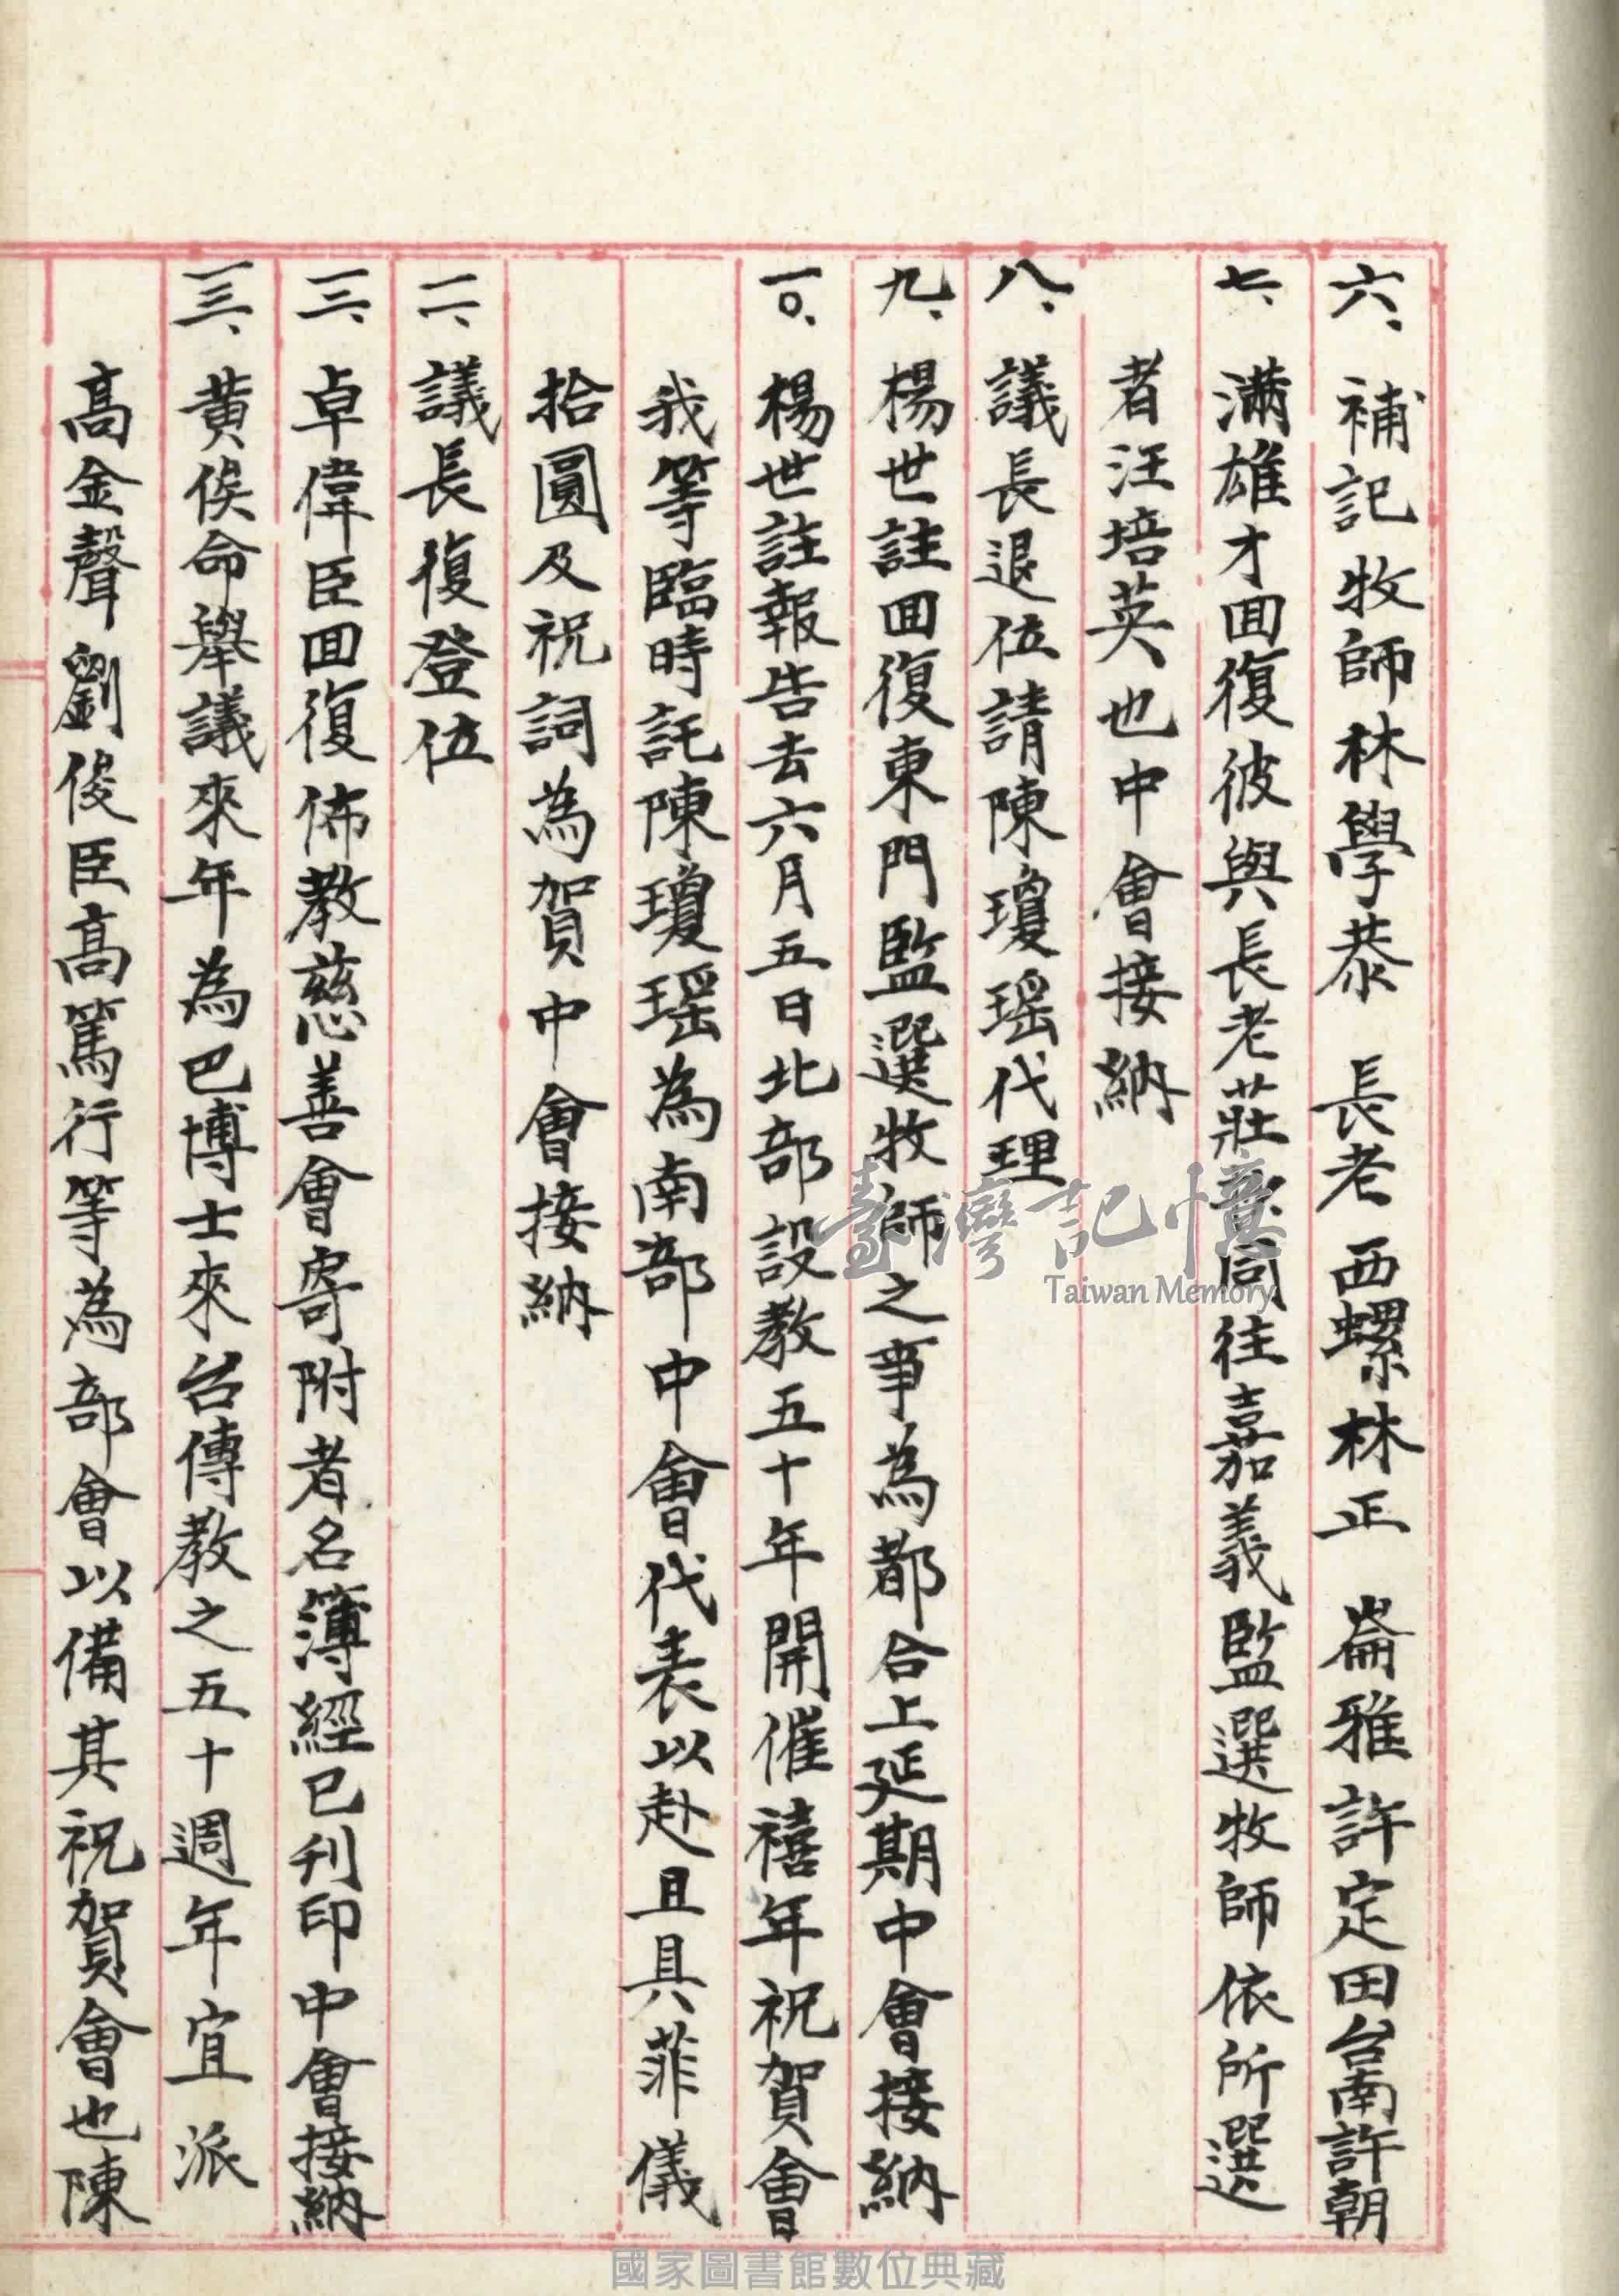 六、補記牧師林學恭 長老 西螺林正 崙雅許定 田台南許朝
七、滿雄才回復彼與長老莊 同往嘉義監選牧師依所選
者汪培英也中會接納
八、議長退位請陳瓊瑤代理
九、楊世註回復東門監選牧師之事為都合上延期中會接納
一〇、楊世註報告去六月五日北部設教五十年開催禧年祝賀會
我等臨時託陳瓊瑤為南部中會代表以赴且具菲儀
拾圓及祝詞為賀中會接納
一一、議長復登位
一二、卓偉臣回復佈教慈善會寄附者名簿經已刊印中會接納
一三、黃俟命舉議來年為巴博士來台傳教之五十週年宜派
高金聲劉俊臣高篤行等為部會以備其祝賀會也陳
臺灣記憶
Taiwan Memory
國家圖書館數位典藏